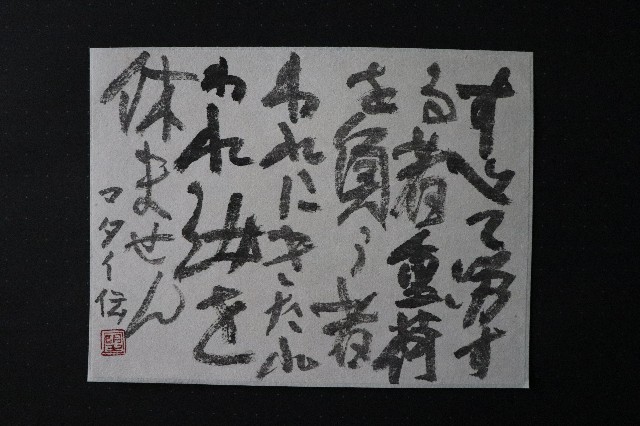 すべて労す
る者重荷
を負う者
われにきたれ
われ汝を
休ません
マタイ伝